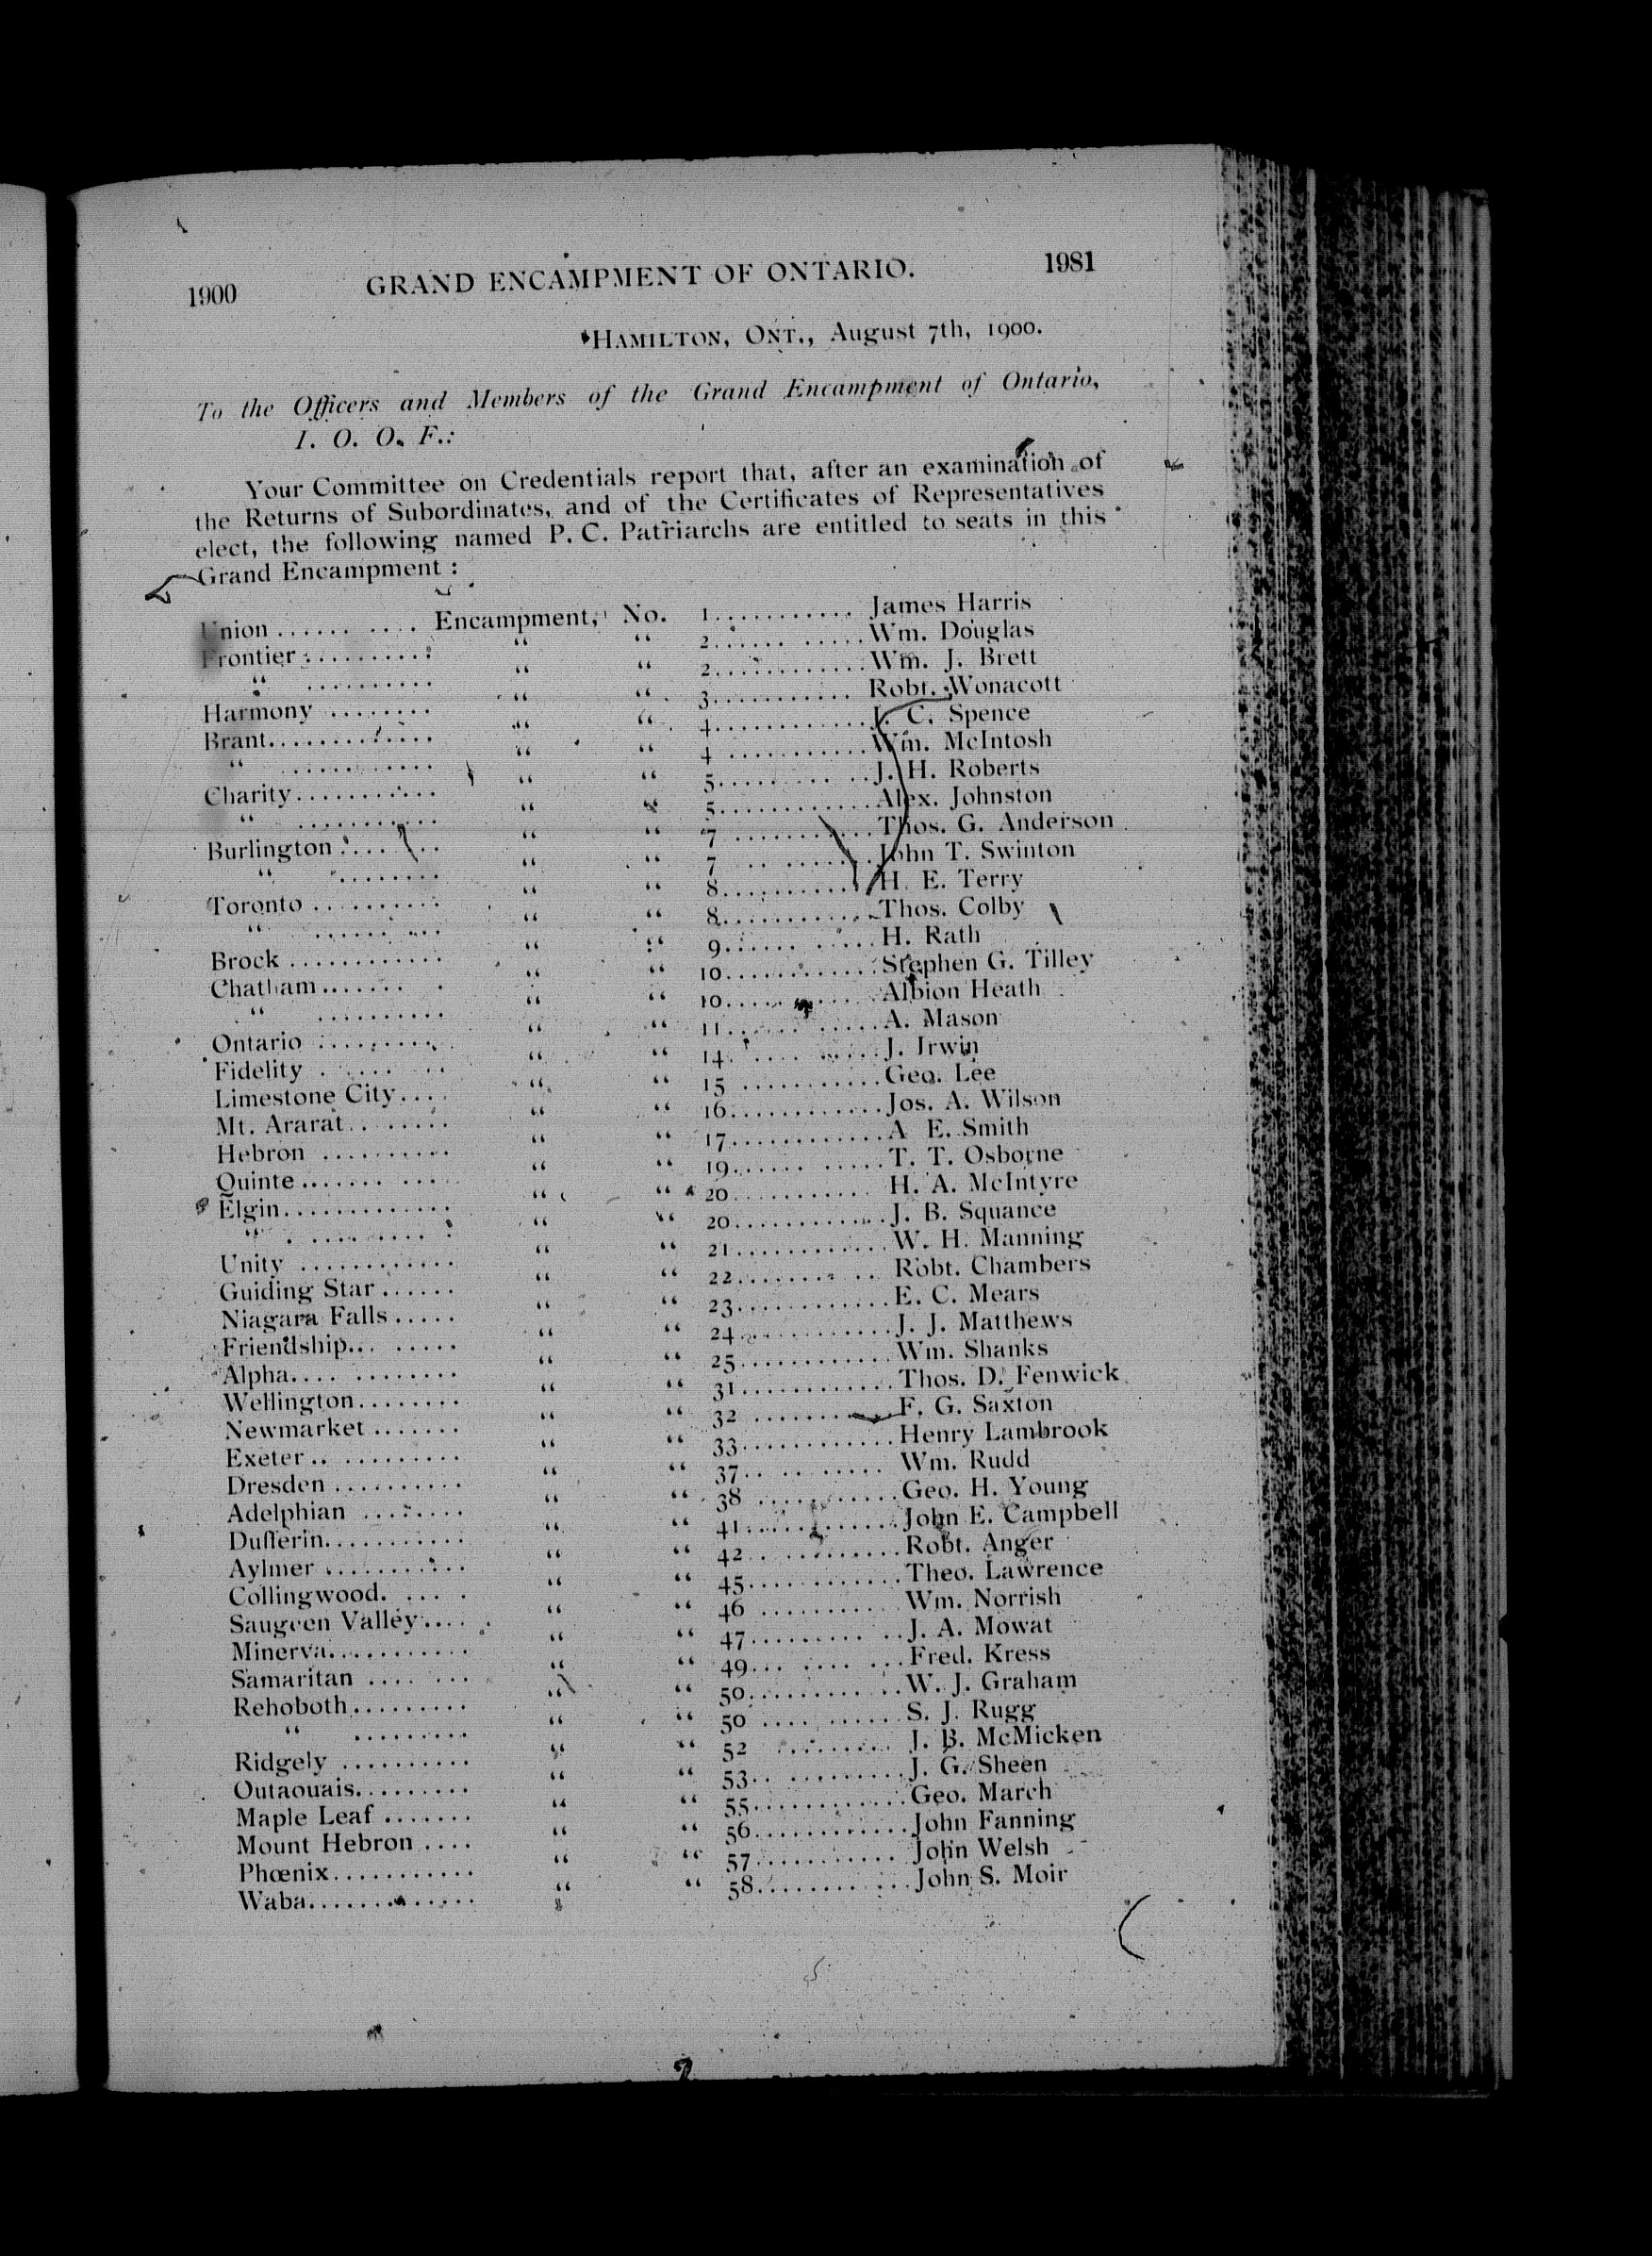 1900 GRAND ENCAMPMENT OF ONTARIO. 1981
HAMILTON, ONT., August 7th, 1900.
To the Officers and Members of the Grand Encampment of Ontario,
I. O. O. F.:
Your Committee on Credentials report that, after an examination of
the Returns of Subordinates, and of the Certificates of Representatives
elect, the following named P. C. Patriarchs are entitled to seats in this
Grand Encampment :
Union .......... Encampment, No. 1........... James Harris
Frontier .......... “ “ 2........... Wm. Douglas
“ .......... “ “ 2........... Wm. J. Brett
Harmony ........ “ “ 3........... Robt. Wonacott
Brant............. “ “ 4........... J. C. Spence
“ ........... “ “ 4 ........... Wm. McIntosh
Charity........... “ “ 5........... J. H. Roberts
“ ........... “ “ 5........... Alex. Johnston
Burlington ........ “ “ 7 ........... Thos. G. Anderson
“ ........ “ “ 7 ........... John T. Swinton
Toronto .......... “ “ 8........... H. E. Terry
“ .......... “ “ 8........... Thos. Colby
Brock ............ “ “ 9........... H. Rath
Chatham........ “ “ 10............ Stephen G. Tilley
“ .......... “ “ 10............ Albion Heath
Ontario .......... “ “ 11........... A. Mason
Fidelity .......... “ “ 14........... J. Irwin
Limestone City.... “ “ 15 ........... Geo. Lee
Mt. Ararat........ “ “ 16............ Jos. A. Wilson
Hebron .......... “ “ 17............ A E. Smith
Quinte........... “ “ 19........... T. T. Osborne
Elgin............. “ “ 20........... H. A. McIntyre
“ .......... “ “ 20............ J. B. Squance
Unity ............ “ “ 21............ W. H. Manning
Guiding Star...... “ “ 22........... Robt. Chambers
Niagara Falls..... “ “ 23............ E. C. Mears
Friendship........ “ “ 24............ J. J. Matthews
Alpha............ “ “ 25............ Wm. Shanks
Wellington........ “ “ 31............ Thos. D. Fenwick
Newmarket ....... “ “ 32 ........... F. G. Saxton
Exeter........... “ “ 33............ Henry Lambrook
Dresden .......... “ “ 37.. ........ Wm. Rudd
Adelphian ........ “ “ 38 ........... Geo. H. Young
Dufferin........... “ “ 41............ John E. Campbell
Aylmer ........... “ “ 42............ Robt. Anger
Collingwood. ..... “ “ 45............ Theo. Lawrence
Saugeen Valley.... “ “ 46 ........... Wm. Norrish
Minerva........... “ “ 47........... J. A. Mowat
Samaritan ....... “ “ 49.......... Fred. Kress
Rehoboth......... “ “ 50............ W. J. Graham
“ ......... “ “ 50 .......... S. J. Rugg
Ridgely .......... “ “ 52 ......... J. B. McMicken
Outaouais......... “ “ 53........... J. G. Sheen
Maple Leaf ....... “ “ 55............ Geo. March
Mount Hebron .... “ “ 56............ John Fanning
Phœnix........... “ “ 57........... John Welsh
Waba............. “ “ 58........... John S. Moir